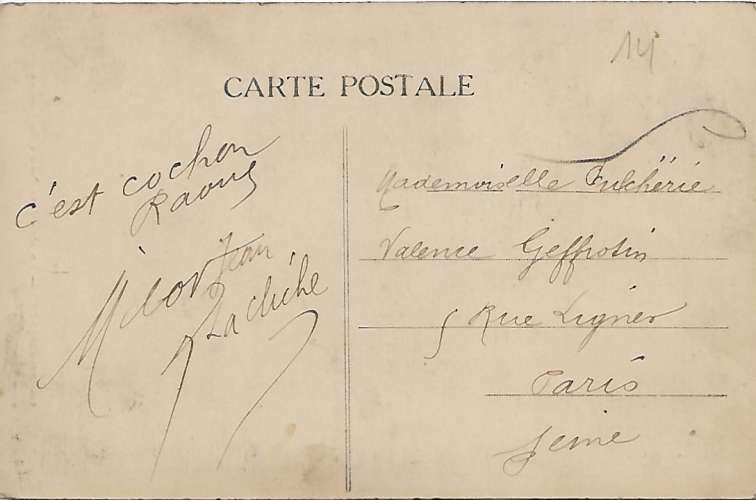 14
CARTE POSTALE
c'est cochon
Raoul
Jean
Mademoiselle Pulchérie
Valence Geffrotin
5 Rue Ligner
Paris
Seine